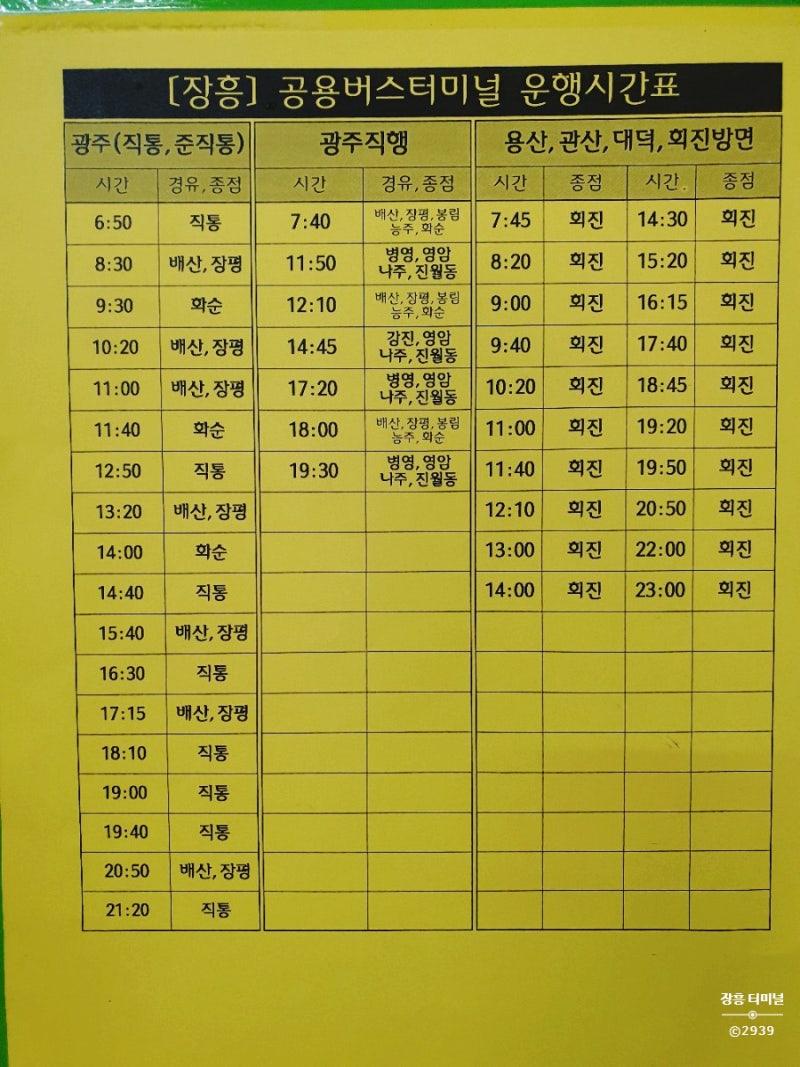 [장흥] 공용버스터미널 운행시간표
광주(직통,준직통) 광주직행 용산,관산,대덕,회진방면
시간 경유,종점 시간 경유,종점 시간 종점 시간 종점
6:50 직통 7:40 배산,장평,봉림 능주,화순 7:45 회진 14:30 회진
8:30 배산,장평 11:50 병영,영암 나주,진월동 8:20 회진 15:20 회진
9:30 화순 12:10 배산,장평,봉림 능주,화순 9:00 회진 16:15 회진
10:20 배산,장평 14:45 강진,영암 나주,진월동 9:40 회진 17:40 회진
11:00 배산,장평 17:20 병영,영암 나주,진월동 10:20 회진 18:45 회진
11:40 화순 18:00 배산,장평,봉림 능주,화순 11:00 회진 19:20 회진
12:50 직통 19:30 병영,영암 나주,진월동 11:40 회진 19:50 회진
13:20 배산,장평 12:10 회진 20:50 회진
14:00 화순 13:00 회진 22:00 회진
14:40 직통 14:00 회진 23:00 회진
15:40 배산,장평
16:30 직통
17:15 배산,장평
18:10 직통
19:00 직통
19:40 직통
20:50 배산,장평
21:20 직통
장흥 터미널
©2939